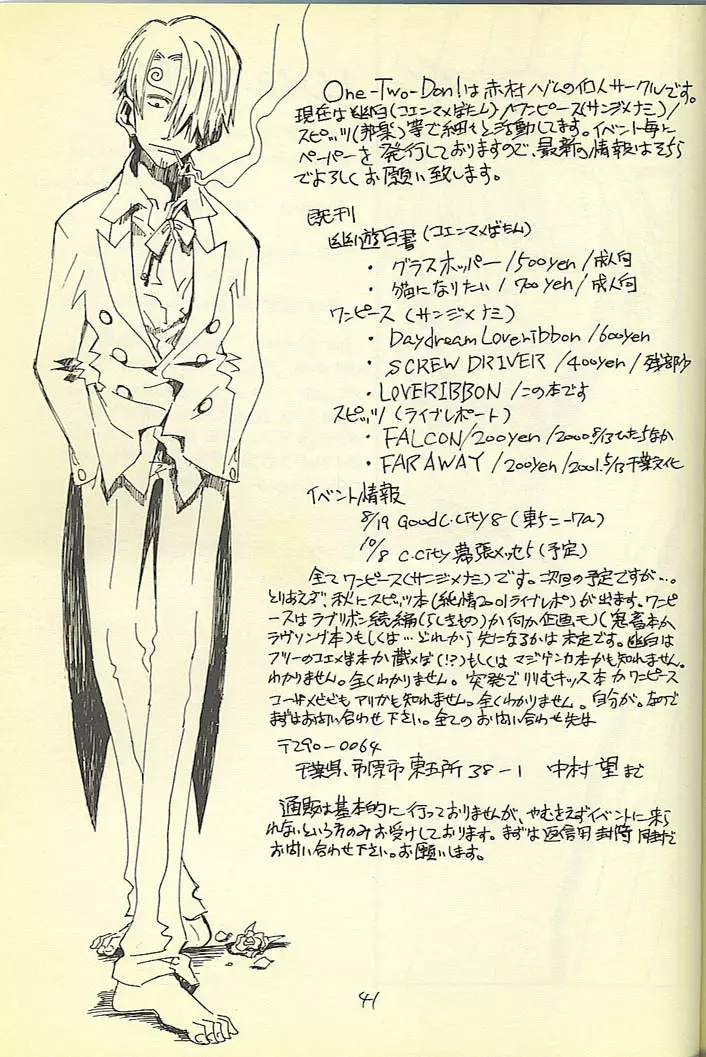 One-Two-Don!は赤村ノゾムの個人サークルです。
現在は幽白(コエンマ×ぼたん)/ワンピース(サンジ×ナミ)/
スピッツ(邦楽)等で細々と活動してます。イベント毎に
ペーパーを発行しておりますので、最新の情報はそちら
でよろしくお願い致します。
既刊
幽遊白書(コエンマ×ぼたん)
・グラスホッパー/500yen/成人向
・猫になりたい/700yen/成人向
ワンピース(サンジ×ナミ)
・Daydream Loveribbon/600yen
・SCREW DRIVER/400yen/残部少
・LOVERIBBON/この本です
スピッツ(ライブレポート)
・FALCON/200yen/2000.8/13ひたちなか
・FARAWAY/200yen/2001.5/13千葉文化
イベント情報
8/19 Good C.City 8(東5ニ-17a)
10/8 C.City幕張メッセ5(予定)
全てワンピース(サンジ×ナミ)です。次回の予定ですが…。
とりあえず、秋にスピッツ本(純情2001ライブレポ)が出ます。ワンピ
ースはラブリボン続編(らしきもの)か何か企画モノ(鬼畜本か
ラヴソング本)もしくは…どれから先になるかは未定です。幽白は
フリーのコエ×ぼ本か蔵×ぼ(!?)もしくはマジゲンカ本かも知れません。
わかりません。全くわかりません。突発でりりむキッス本かワンピース
コーザ×ビビもアリかも知れません。全くわかりません。自分が。なので
まずはお問い合わせ下さい。全てのお問い合わせ先は
〒290-0064
千葉県、市原市東五所38-1 中村 望まで
通販は基本的に行っておりませんが、やむをえずイベントに来ら
れないという方のみお受けしております。まずは返信用封筒同封で
お問い合わせ下さい。お願いします。
41